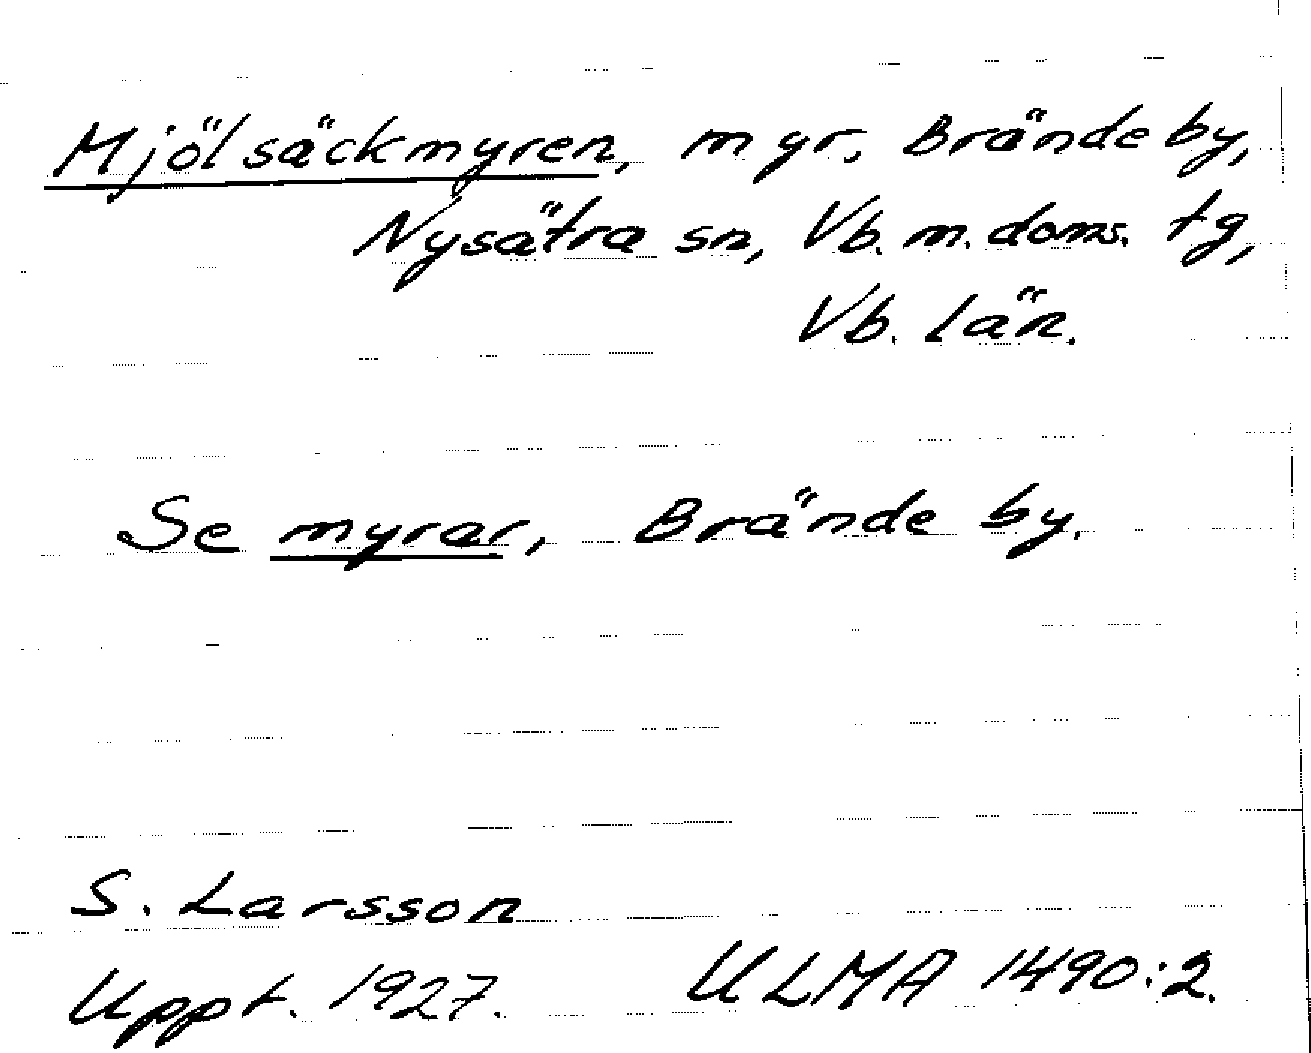 Mjölsäckmyren, myr, Brände by,
Nysätra sn, Vb. m. doms. tg,
Vb. län.
Se myrar, Brände by.
S. Larsson
Uppt. 1927. ULMA 1490:2.